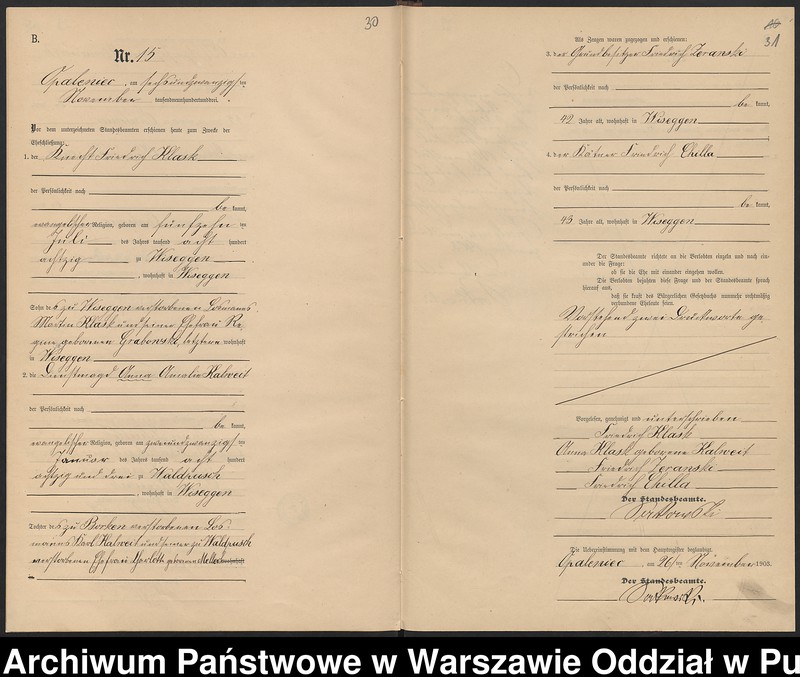 30
B.
Nr. 15
Opaleniec, am sechsundzwanzigsten
November tausendneunhundertunddrei.
Vor dem unterzeichneten Standesbeamten erschienen heute zum Zwecke der
Eheschließung:
1. der Knecht Friedrich Klask
der Persönlichkeit nach
be kannt,
evangelischer Religion, geboren am fünfzehn ten
Juli des Jahres tausend acht hundert
achtzig zu Wiseggen
, wohnhaft in Wiseggen
Sohn des zu Wiseggen verstorbenen Losmanns
Martin Klask und seiner Ehefrau Re-
gine geborenen Grabowski, letztere wohnhaft
in Wiseggen
2. die Dienstmagd Anna Amalie Kalweit
der Persönlichkeit nach
be kannt,
evangelischer Religion, geboren am zweiundzwanzigsten
Januar des Jahres tausend acht hundert
achtzig und drei zu Waldpusch
, wohnhaft in Wiseggen
Tochter des zu Borken verstorbenen Los-
manns Karl Kalweit und seiner zu Waldpusch
verstorbenen Ehefrau Charlotte geborenen wohnhaft
in
31
Als Zeugen waren zugezogen und erschienen:
3. der Grundbesitzer Friedrich Zeranski
der Persönlichkeit nach
be kannt,
42 Jahre alt, wohnhaft in Wiseggen
4. der Kätner Friedrich Chilla
der Persönlichkeit nach
be kannt,
43 Jahre alt, wohnhaft in Wiseggen.
Der Standesbeamte richtete an die Verlobten einzeln und nach ein-
ander die Frage:
ob sie die Ehe mit einander eingehen wollen.
Die Verlobten bejahten diese Frage und der Standesbeamte sprach
hierauf aus,
daß sie kraft des Bürgerlichen Gesetzbuchs nunmehr rechtmäßig
verbundene Eheleute seien.
Vorstehend zwei Druckworte ge-
strichen.
Vorgelesen, genehmigt und unterschrieben
Friedrich Klask
Anna Klask geborene Kalweit
Friedrich Zeranski
Friedrich Chilla
Der Standesbeamte.
Die Uebereinstimmung mit dem Hauptregister beglaubigt.
Opaleniec, am 26ten November 1903.
Der Standesbeamte.
Archiwum Państwowe w Warszawie Oddział w Pu